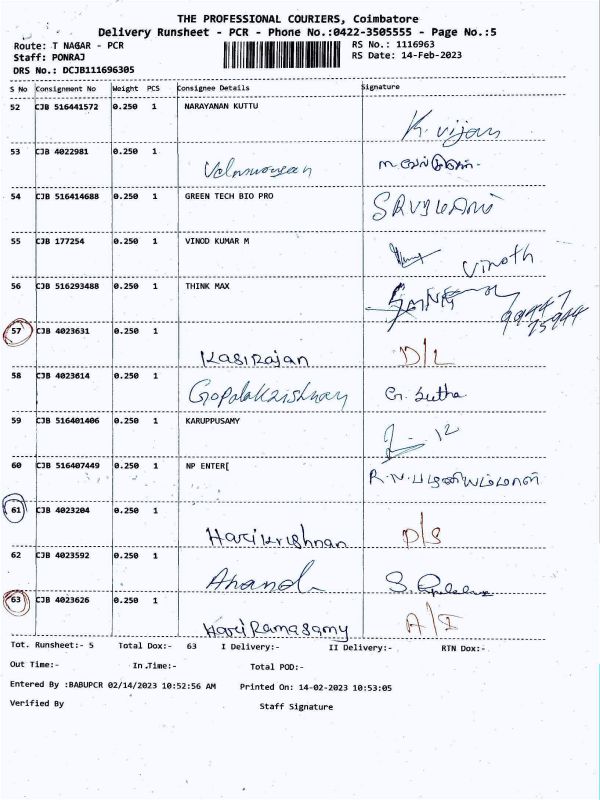 THE PROFESSIONAL COURIERS, Coimbatore
Delivery Runsheet - PCR - Phone No.:0422-3505555 - Page No.:5
Route: T NAGAR - PCR RS No.: 1116963
Staff: PONRAJ RS Date: 14-Feb-2023
DRS No.: DCJB111696305
S No Consignment No Weight PCS Consignee Details Signature
52 CJB 516441572 0.250 1 NARAYANAN KUTTU
K. vijay
53 CJB 4022981 0.250 1
54 CJB 516414688 0.250 1 GREEN TECH BIO PRO
55 CJB 177254 0.250 1 VINOD KUMAR M
Vinoth
56 CJB 516293488 0.250 1 THINK MAX
99447
75944
57 CJB 4023631 0.250 1
Kasirajan D/L
58 CJB 4023614 0.250 1
Gopalakrishnan G. Sutha
59 CJB 516401406 0.250 1 KARUPPUSAMY
60 CJB 516407449 0.250 1 NP ENTER[
R.N. பழனியம்மாள்
61 CJB 4023204 0.250 1
Harikrishnan D/S
62 CJB 4023592 0.250 1
Anand
63 CJB 4023626 0.250 1
HariRamasamy A/I
Tot. Runsheet:- 5 Total Dox:- 63 I Delivery:- II Delivery:- RTN Dox:-
Out Time:- In.Time:- Total POD:-
Entered By :BABUPCR 02/14/2023 10:52:56 AM Printed On: 14-02-2023 10:53:05
Verified By Staff Signature